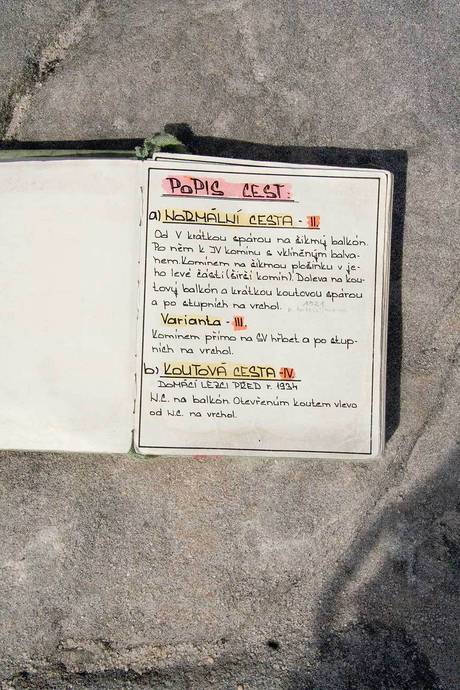 POPIS CEST:
a) NORMÁLNÍ CESTA - II.
Od V krátkou spárou na šikmý balkón.
Po něm k JV komínu s vklíněným balva-
nem. Komínem na šikmou plošinku v je-
ho levé části (širší komín). Doleva na kou-
tový balkón a krátkou koutovou spárou
a po stupních na vrchol. 1921
Varianta - III.
Komínem přímo na SV hřbet a po stup-
ních na vrchol.
b) KOUTOVÁ CESTA - IV.
DOMÁCÍ LEZCI PŘED r. 1934
N.C. na balkón. Otevřeným koutem vlevo
od N.C. na vrchol.